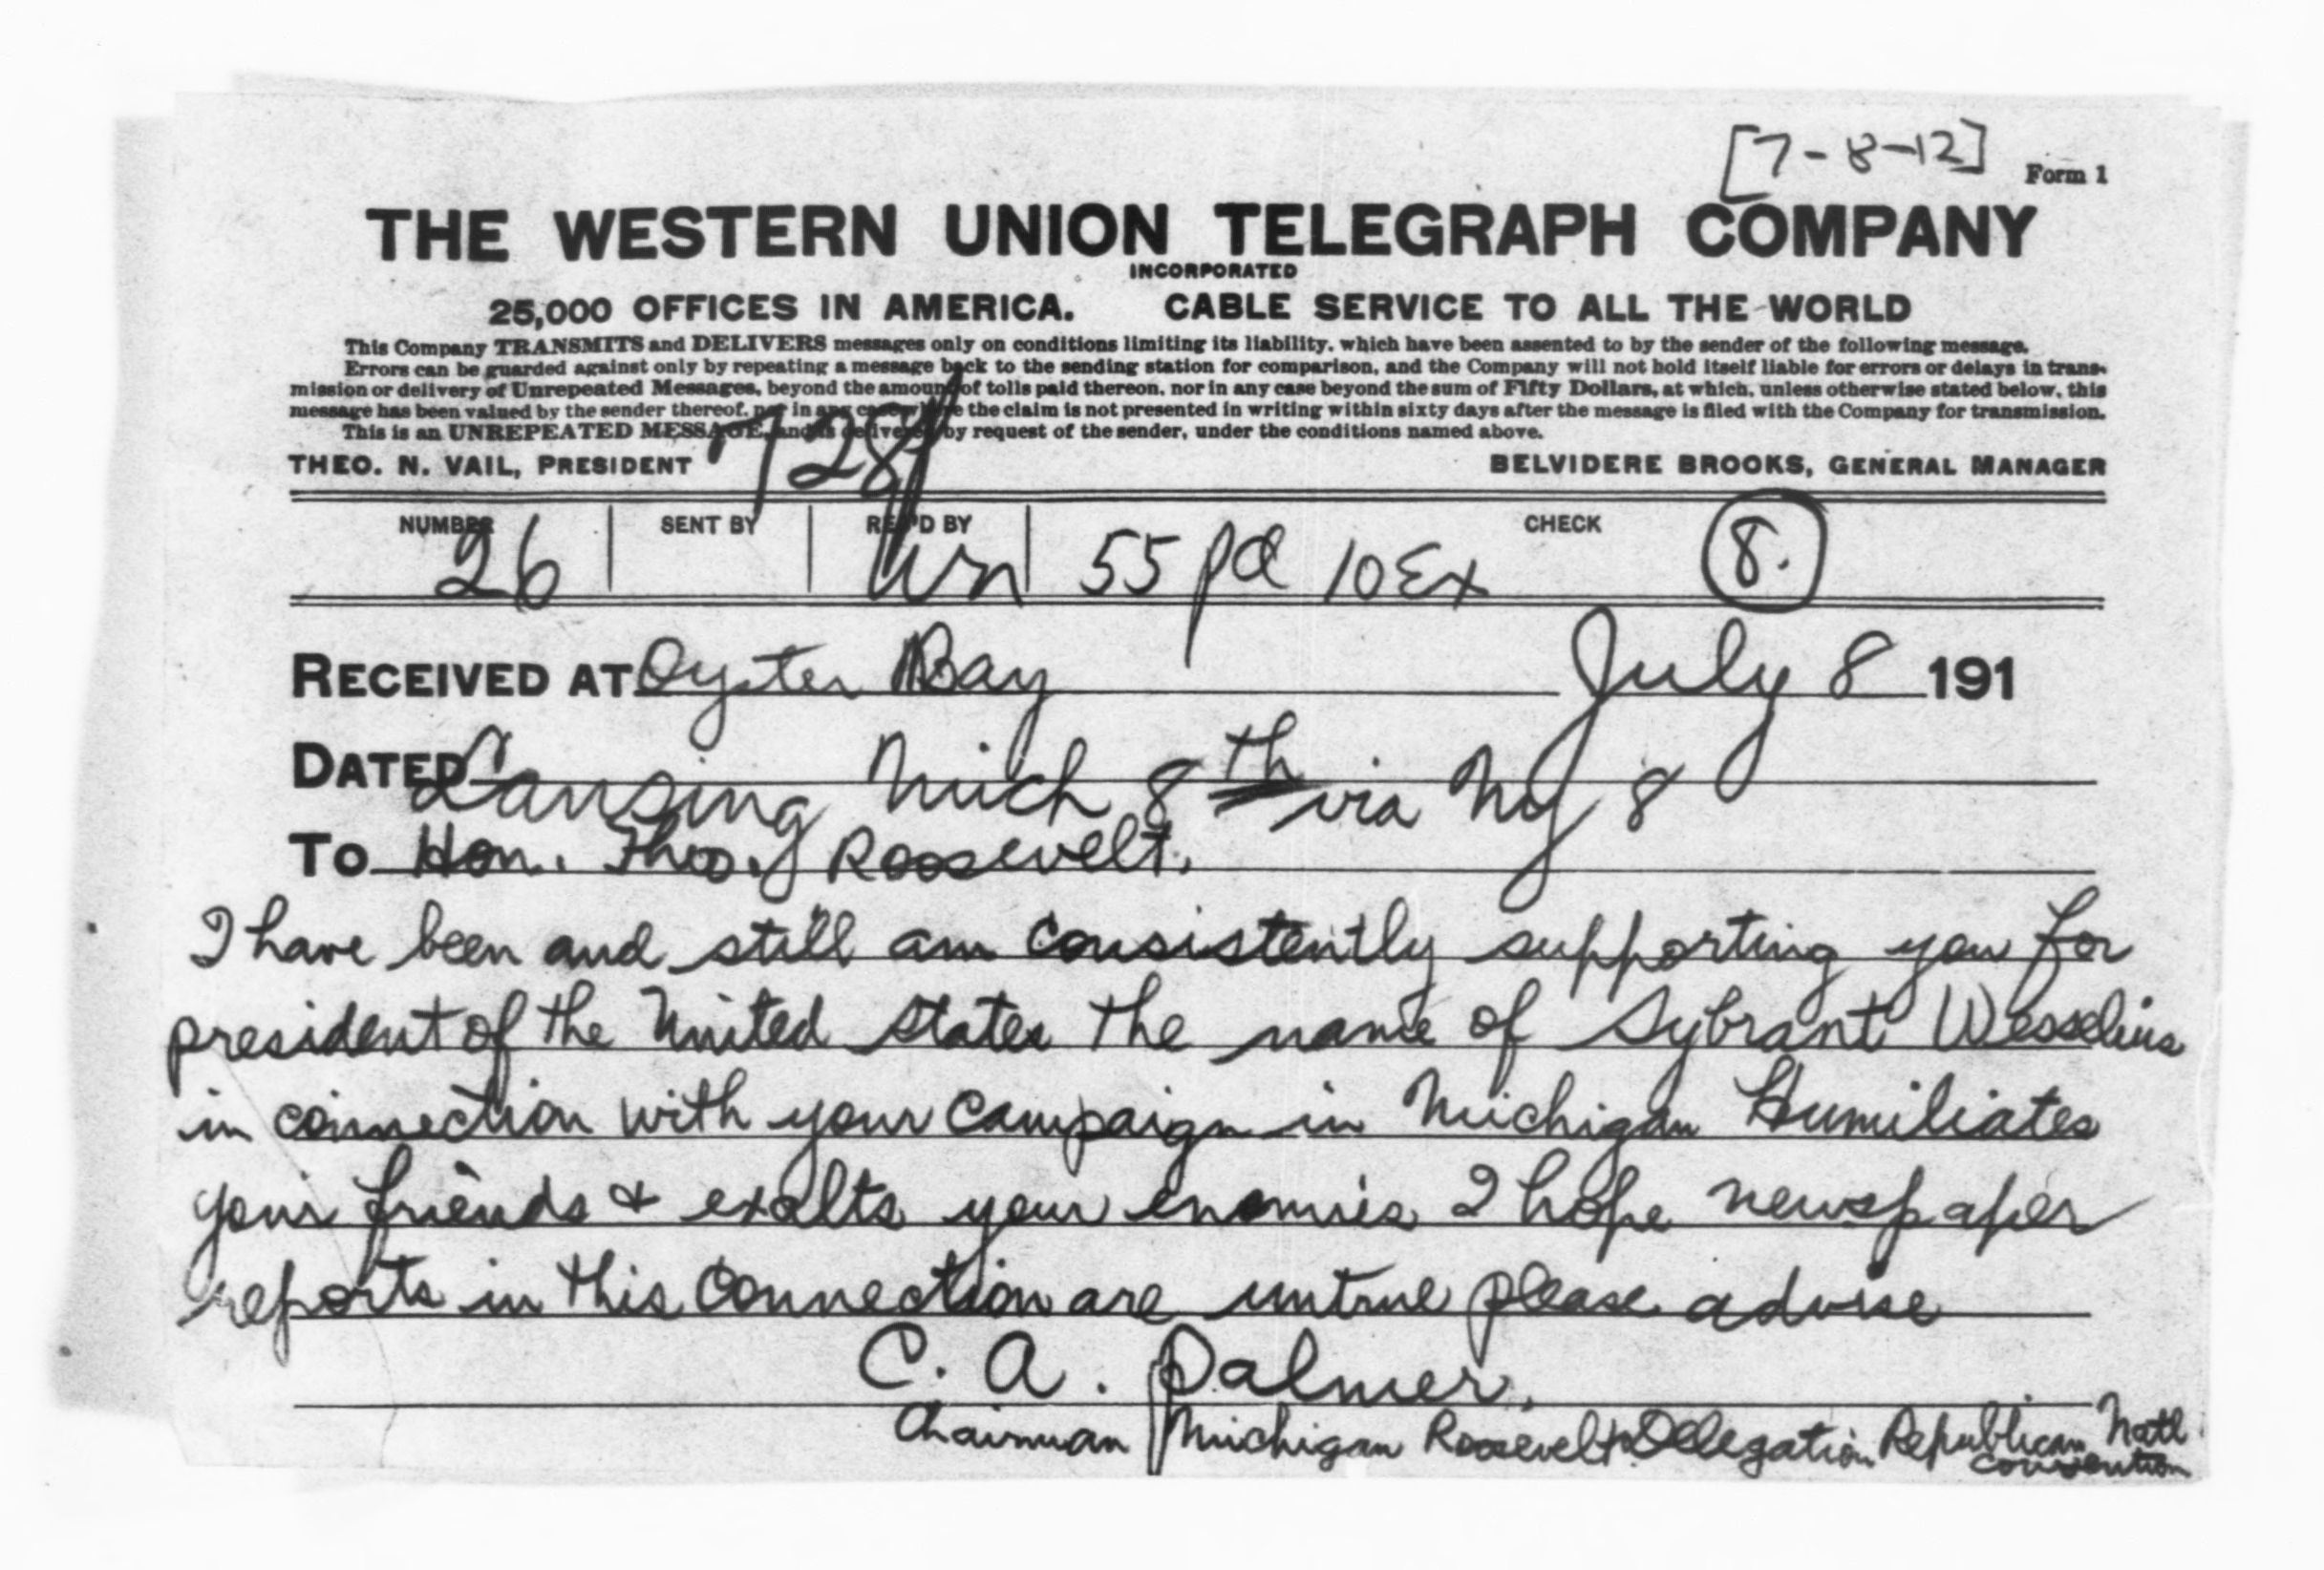 [7-8-12]
Form 1
THE WESTERN UNION TELEGRAPH COMPANY
INCORPORATED
25,000 OFFICES IN AMERICA. CABLE SERVICE TO ALL THE WORLD
This Company TRANSMITS and DELIVERS messages only on conditions limiting its liability, which have been assented to by the sender of the following message.
Errors can be guarded against only by repeating a message back to the sending station for comparison, and the Company will not hold itself liable for errors or delays in trans-
mission or delivery of Unrepeated Messages, beyond the amount of tolls paid thereon, nor in any case beyond the sum of Fifty Dollars, at which, unless otherwise stated below, this
message has been valued by the sender thereof, nor in any case where the claim is not presented in writing within sixty days after the message is filed with the Company for transmission.
This is an UNREPEATED MESSAGE, and is delivered by request of the sender, under the conditions named above.
THEO. N. VAIL, PRESIDENT 728 BELVIDERE BROOKS, GENERAL MANAGER
NUMBER SENT BY REC'D BY CHECK
26 55 pd 10 Ex 8.
RECEIVED AT Oyster Bay July 8 191
DATED Lansing Mich 8th via Ny 8
TO Hon. Theo. Roosevelt.
I have been and still am consistently supporting you for
president of the United States the name of Sybrant Wesselius
in connection with your campaign in Michigan Humiliates
your friends & exalts your enemies I hope newspaper
reports in this connection are untrue please advise
C. A. Palmer,
Chairman Michigan Roosevelt Delegation Republican Natl
convention